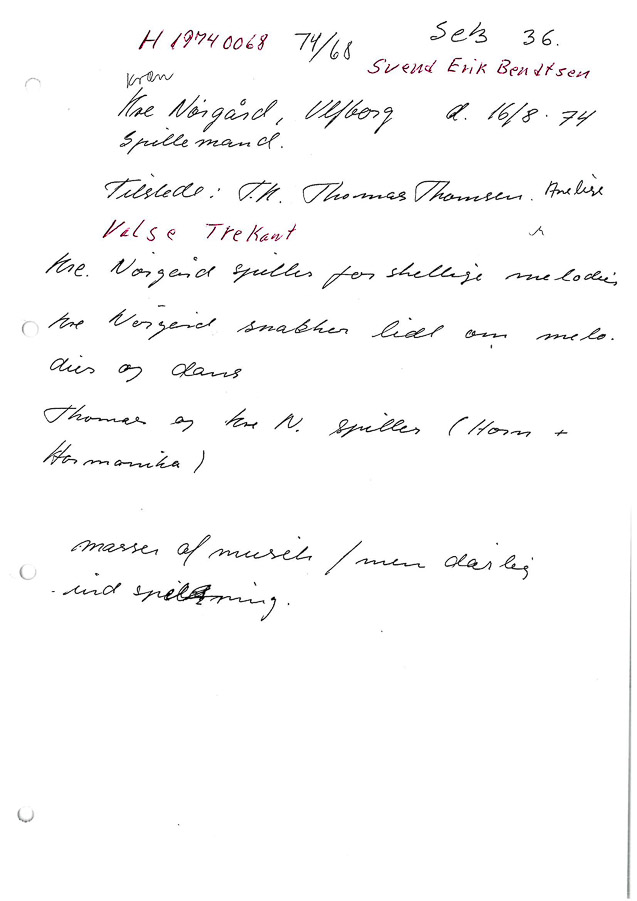 H 19740068 74/68 SEB 36.
Svend Erik Bendtsen
Kræn
Kre Nørgård, Ulfborg d. 16/8 - 74
Spillemand.
Tilstede: T.K. Thomas Thomsen. Anelise
Valse Trekant
Kre. Nørgård spiller forskellige melodier
Kre Nørgård snakker lidt om melo-
dier og dans
Thomas og Kre N. spiller (Horn +
Harmonika)
masser af musik / men dårlig
ind spilning.